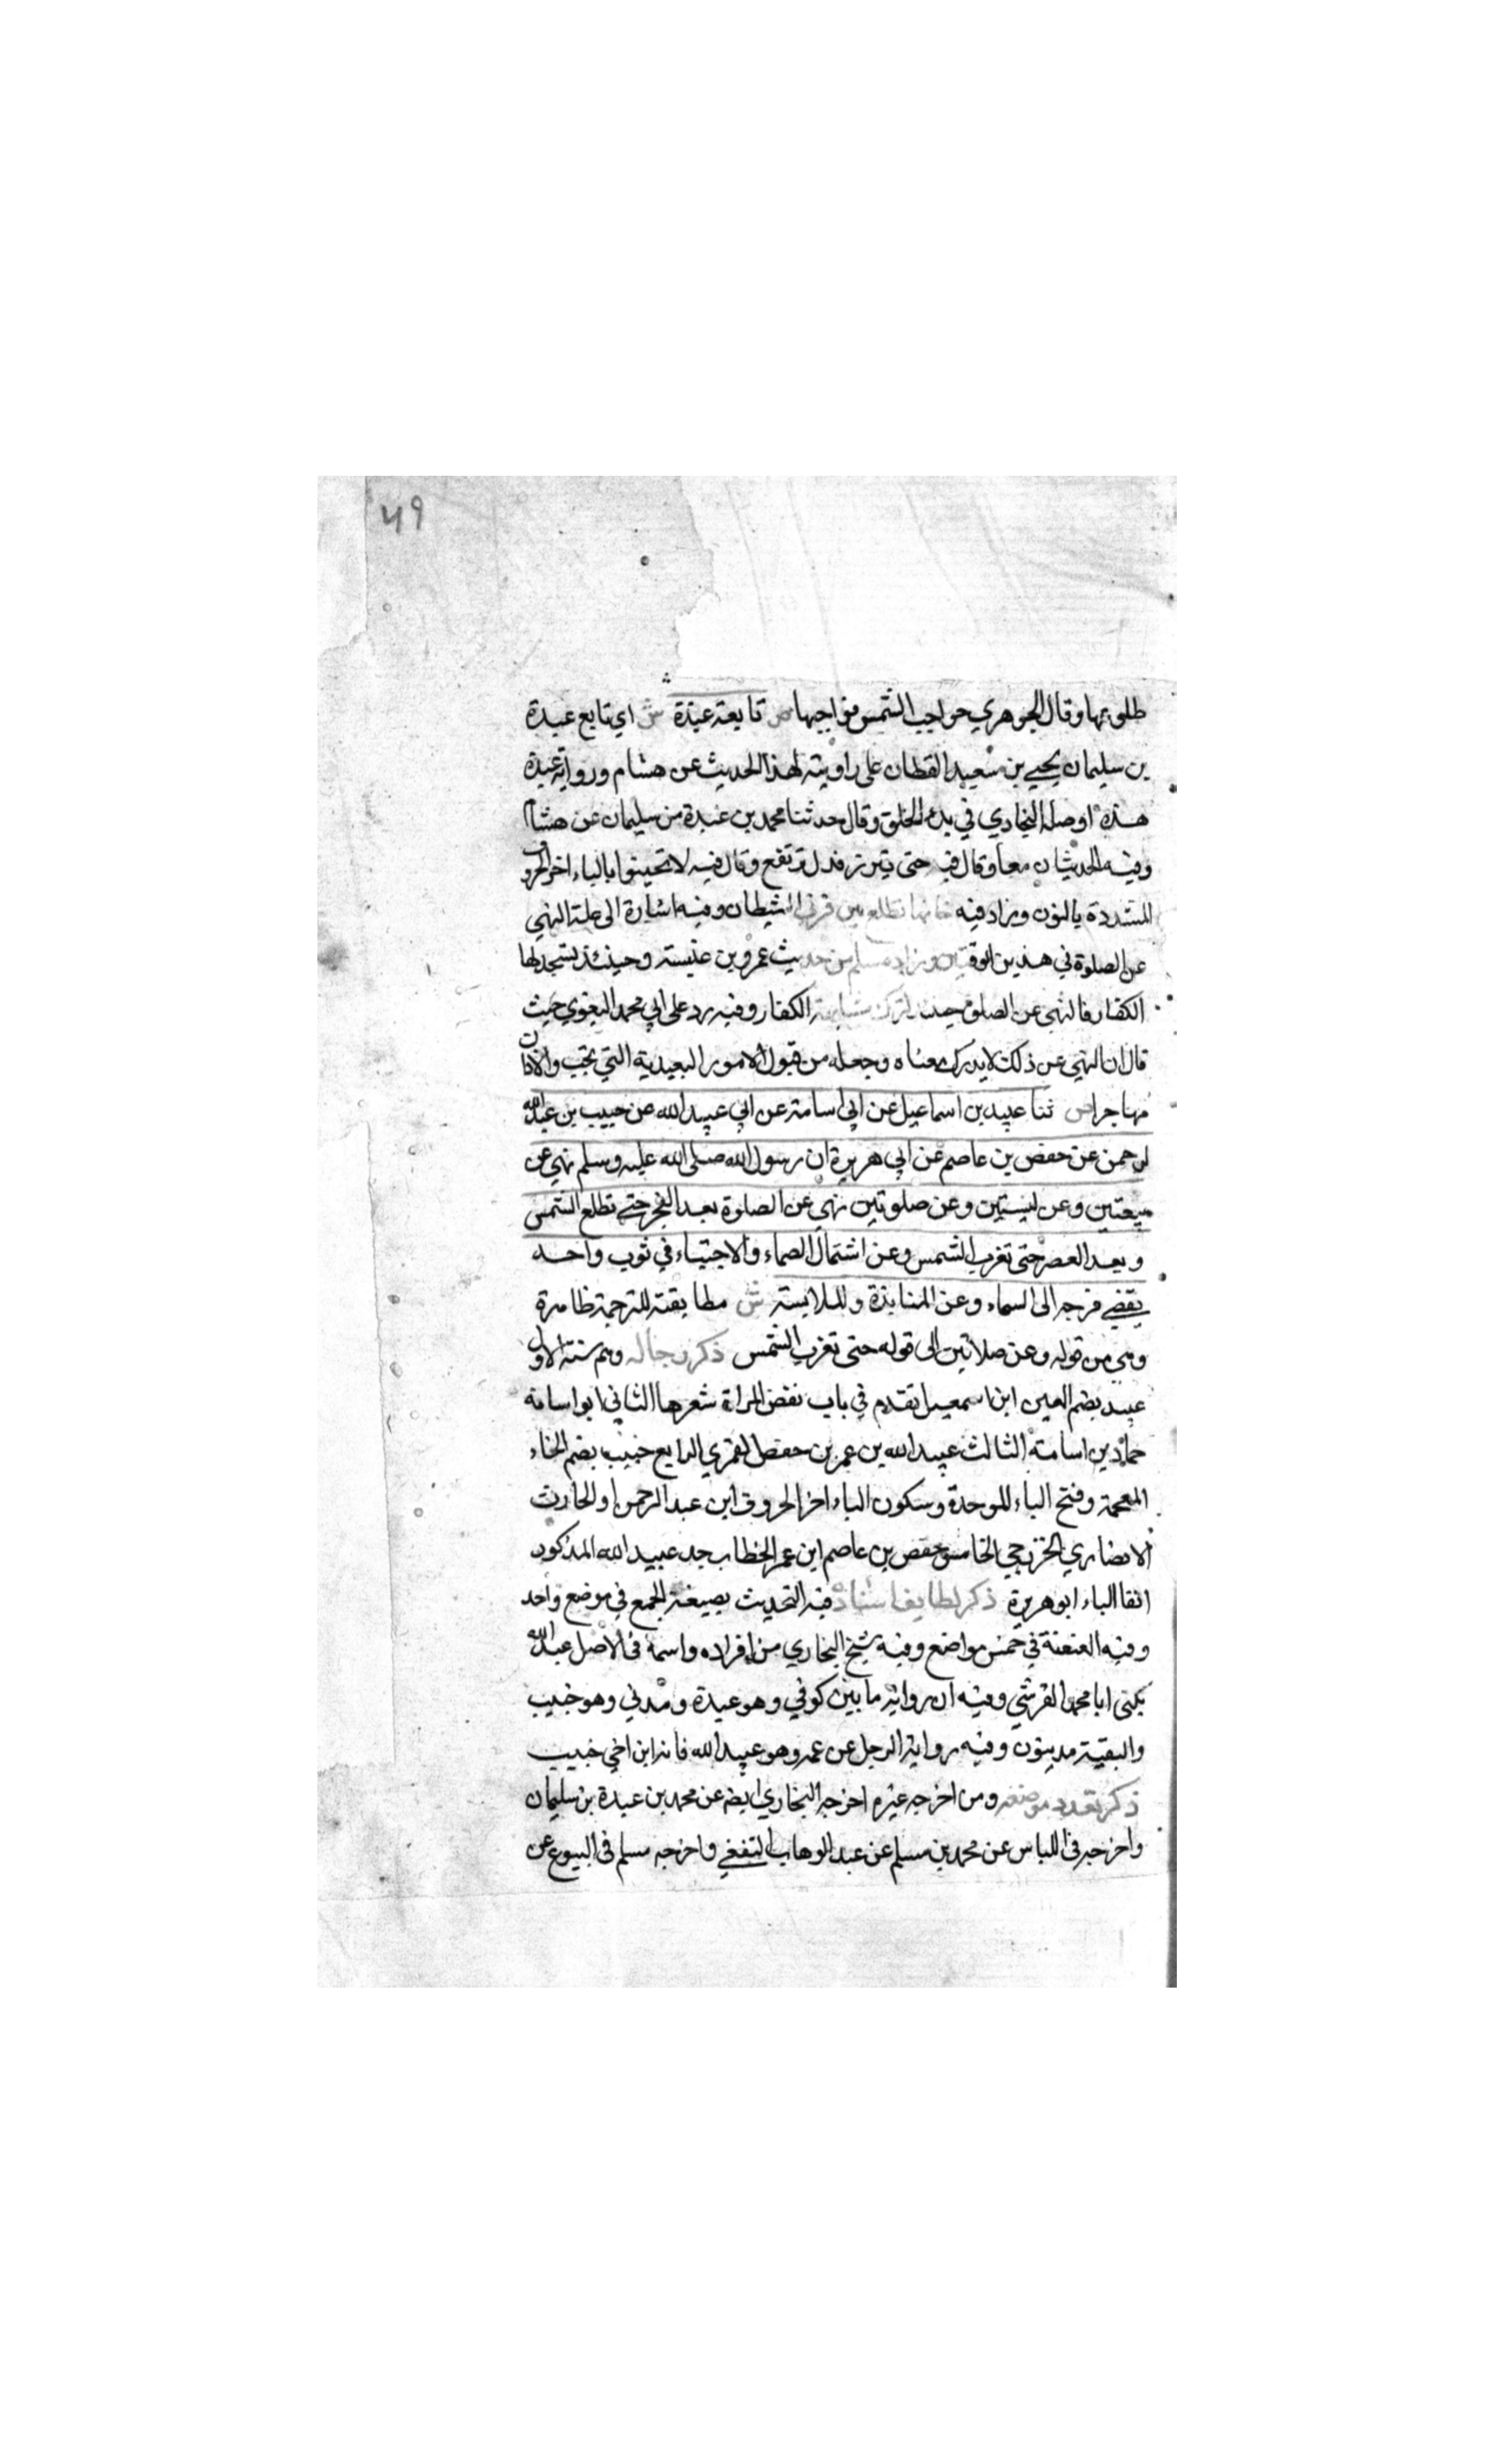 ٤٩
طلوعها وقال الجوهري حواجب الشمس نواجيها ص تابعه عبدة ش اي تابع عبدة
بن سليمان يحيي بن سعيد القطان على راويته لهذا الحديث عن هشام ورواية عبدة
هذه اوصله البخاري في بدء الخلق وقال حدثنا محمد بن عبدة من سليمان عن هشام
وفيه الحديثان معا وقال فيه حتى تبرز فدل ترتفع وقال فيه لا تحينوا بالياء اخر الحروف
المشددة بالنون وزاد فيه فانها تطلع بين قرني الشيطان وفيه اشارة الى علة النهي
عن الصلوة في هذين الوقتين وزاد مسلم من حديث عمرو بن عنبسه وحينئذ يستجد لها
الكفار فالنهي عن الصلوة حينئذ لترك مشابهة الكفار وفيه رد على ابي محمد البغوي حيث
قال ان النهي عن ذلك لا يدرك معناه وجعله من قبول الامور البعيدية التي يجب والاذان
مها جرا ص ثنا عبيد بن اسماعيل عن ابي اسامة عن ابي عبيد الله عن حبيب بن عبد الله
لرحمن عن حفص بن عاصم عن ابي هريرة ان رسول الله صلى الله عليه وسلم نهى عن
بيعتين وعن لبستين وعن صلوتين نهى عن الصلوة بعد الفجر حتى تطلع الشمس
وبعد العصر حتى تغرب الشمس وعن اشتمال الصماء والاجتباء في ثوب واحد
يفضي فرجه الى السماء وعن المنابذة والملابسة ش مطابقته للترجمة ظاهرة
وهي من قوله وعن صلاتين الى قوله حتى تغرب الشمس ذكر رجاله وهم ستة الاول
عبيد بضم العين ابن اسمعيل تقدم في باب نقض المراة شعرها الثاني ابو اسامة
حماد بن اسامة الثالث عبيد الله بن عمر بن حفص العمري الرابع خبيب بضم الخاء
المعجمة وفتح الباء الموحدة وسكون الياء اخر الحروف ابن عبد الرحمن او الحارث
الانصاري الخزرجي الخامس حفص بن عاصم ابن عمر الخطاب جد عبيد الله المذكور
انفا الباء ابو هريرة ذكر لطايف اسناده فيه التحديث بصيغة الجمع في موضع واحد
وفيه العنعنة في خمس مواضع وفيه شيخ البخاري من افراده واسمه في الاصل عبد الله
يكنى ابا محمد القرشي وفيه ان رواته ما بين كوفي وهو عبدة ومدني وهو خبيب
والبقية مدينون وفيه رواية الرجل عن عمه وهو عبيد الله فانه ابن اخي خبيب
ذكر تعدد موضعه ومن اخرجه غيره اخرجه البخاري ايضه عن محمد بن عبدة بن سليمان
واخرجه في اللباس عن محمد بن مسلم عن عبد الوهاب الثقفي واخرجه مسلم في البيوع عن